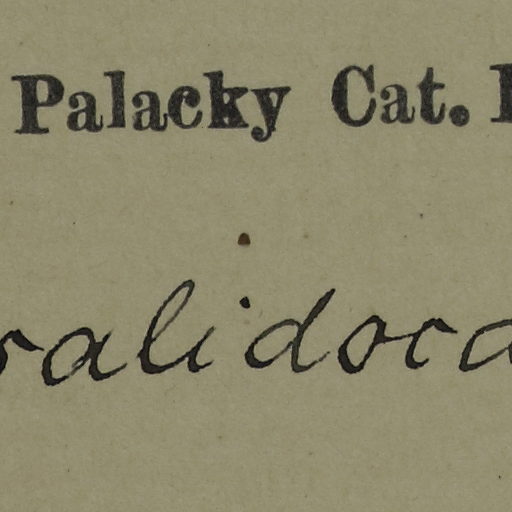 Palacky Cat.
calidoca